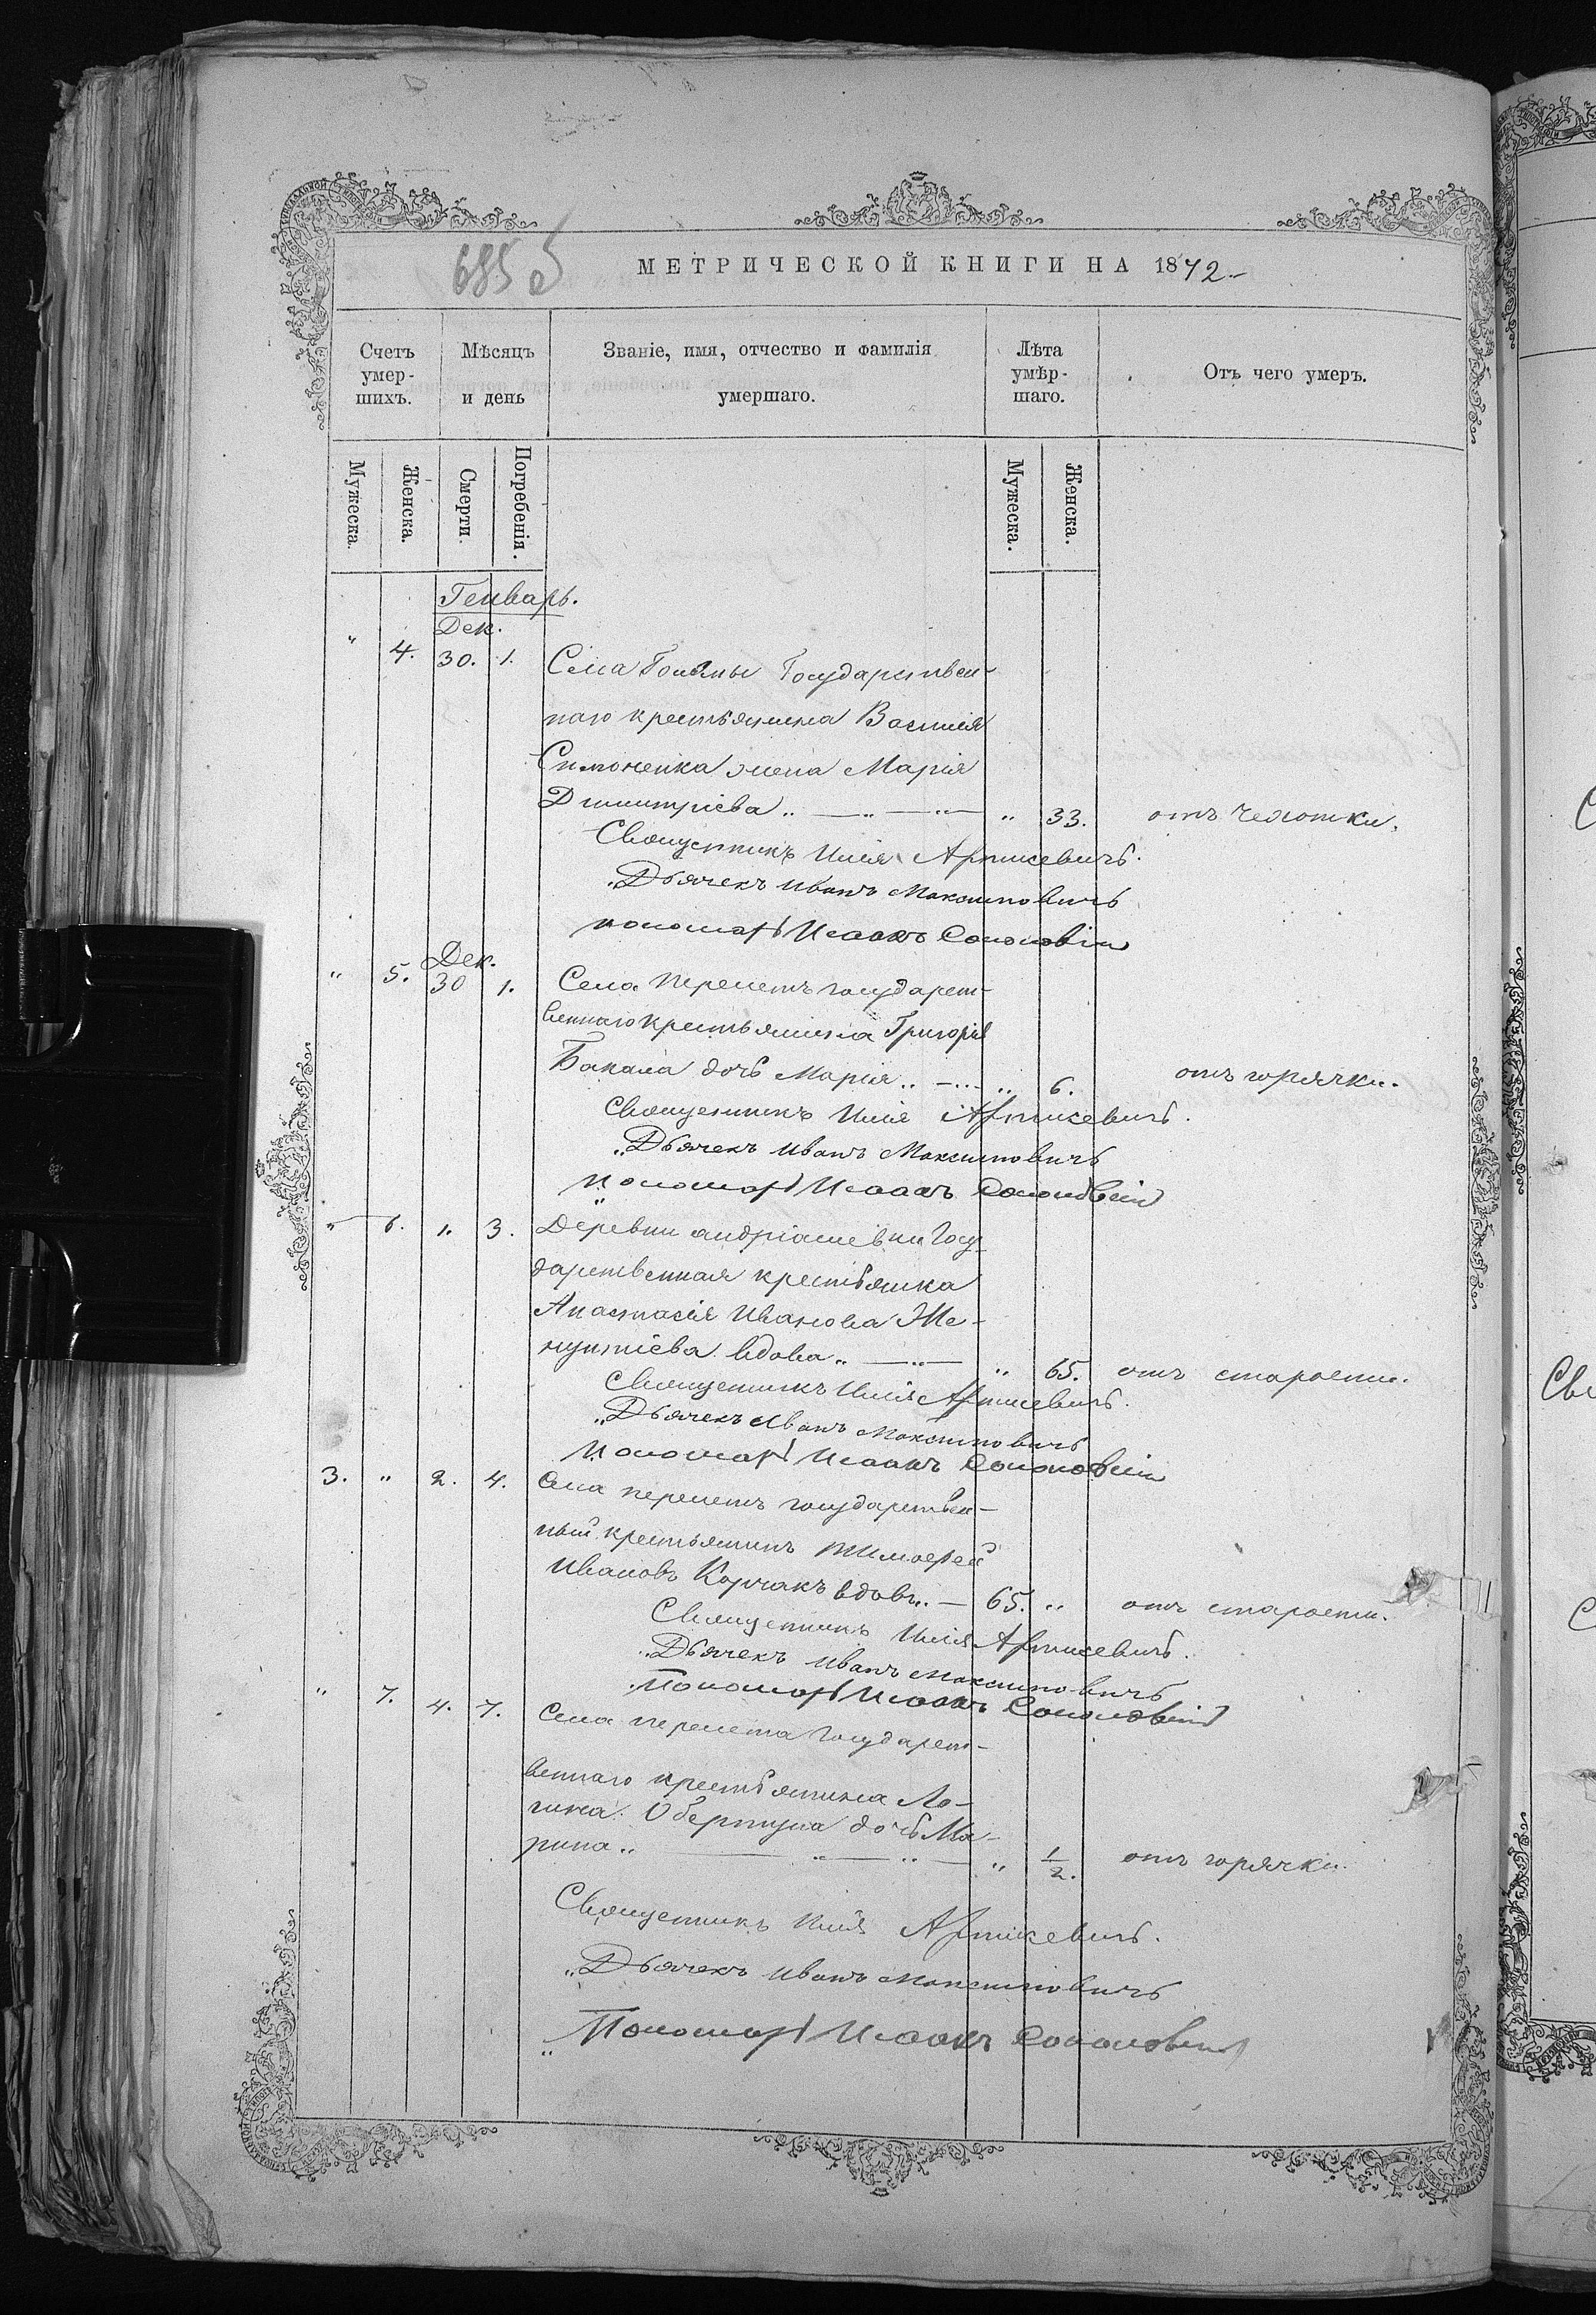 685 об
МЕТРИЧЕСКОЙ КНИГИ НА 1872
Счетъ умер-шихъ.
Мѣсяцъ и день
Званіе, имя, отчество и фамилія умершаго.
Лѣта умѣр-шаго.
Отъ чего умеръ.
Мужеска.
Женска.
Смерти.
Погребенія.
Мужеска.
Женска.
Генварь.
Дек.
" 4. 30. 1. Села Государствен-
наго крестьянина Василія
жена Марія
Димитріева " 33. отъ чехотки.
Священникъ Илія Артисевичъ.
Дьячекъ Иванъ Максимовичъ
пономарь Исаакъ
Дек.
" 5. 30 1. Села Перелетъ государст-
веннаго крестьянина Григорія
Бакала дочь Марія " 6. отъ горячки.
Священникъ Илія Артисевичъ.
Дьячекъ Иванъ Максимовичъ
пономарь Исаакъ
" 6. 1. 3. Деревни Андріашевки Госу-
дарственная крестьянка
Анастасія Иванова Же-
вдова " 65. отъ старости.
Священникъ Илія Артисевичъ.
Дьячекъ Иванъ Максимовичъ
пономарь Исаакъ
3. " 2. 4. Села перелетъ государствен-
ный крестьянинъ Тимофей
Ивановъ Корчакъ вдовъ 65. " отъ старости.
Священникъ Илія Артисевичъ.
Дьячекъ Иванъ Максимовичъ
Пономарь Исаакъ
" 7. 4. 7. Села перелета Государст-
веннаго крестьянина Ло-
гина дочь Ма-
рина " 1/2. отъ горячки.
Священникъ Илія Артисевичъ.
Дьячекъ Иванъ Максимовичъ
Пономарь Исаакъ